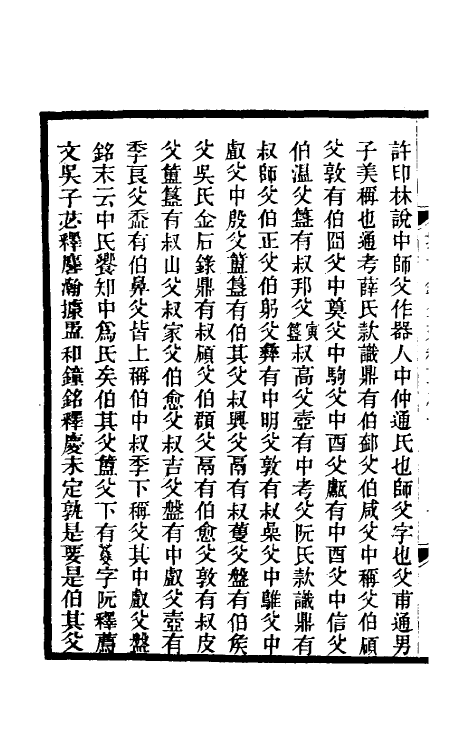 許印林說中師父作器人中仲通氏也師父字也父甫通男
子美稱也通考薛氏款識鼎有伯郄父伯咸父中稱父伯頎
父敦有伯囧父中奠父中駒父中酉父甗有中酉父中信父
伯温父簋有叔邦父寅簋叔高父壺有中考父阮氏款識鼎有
叔師父伯正父伯躬父彝有中明父敦有叔喿父中雝父中
㱃父中殷父簠簋有伯其父叔興父鬲有叔蒦父盤有伯矦
父吳氏金石錄鼎有叔頎父伯顜父鬲有伯愈父敦有叔皮
父簠簋有叔山父叔家父伯愈父叔吉父盤有中㱃父壺有
季良父盉有伯鼻父皆上稱伯中叔季下稱父其中㱃父盤
銘末云中氏饗知中爲氏矣伯其父簠父下有字阮釋薦
文吳子苾釋麐瀚據盄和鐘銘釋慶未定孰是要是伯其父